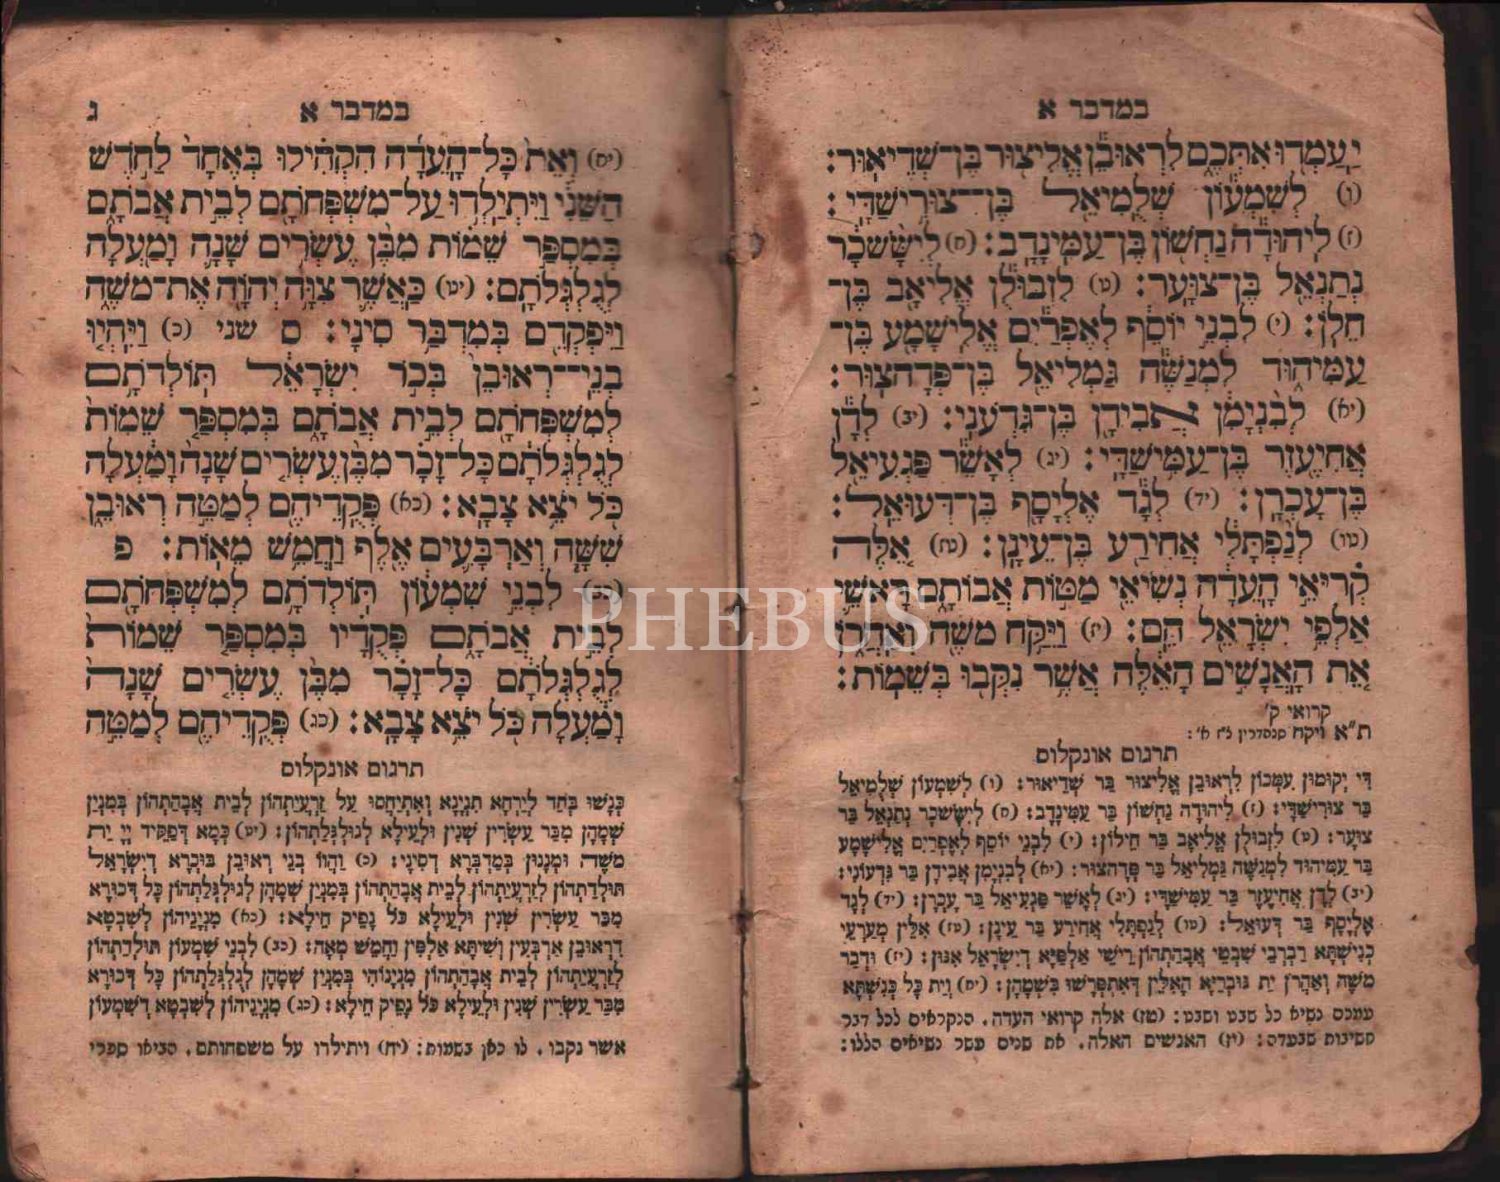 במדבר א
יַעַמְדוּ אִתְּכֶם לִרְאוּבֵן אֱלִיצוּר בֶּן־שְׁדֵיאוּר:
(ו) לְשִׁמְעוֹן שְׁלֻמִיאֵל בֶּן־צוּרִישַׁדָּי:
(ז) לִיהוּדָה נַחְשׁוֹן בֶּן־עַמִּינָדָב: (ח) לְיִשָּׂשכָר
נְתַנְאֵל בֶּן־צוּעָר: (ט) לִזְבוּלֻן אֱלִיאָב בֶּן־
חֵלֹן: (י) לִבְנֵי יוֹסֵף לְאֶפְרַיִם אֱלִישָׁמָע בֶּן־
עַמִּיהוּד לִמְנַשֶּׁה גַּמְלִיאֵל בֶּן־פְּדָהצוּר:
(יא) לְבִנְיָמִן אֲבִידָן בֶּן־גִּדְעֹנִי: (יב) לְדָן
אֲחִיעֶזֶר בֶּן־עַמִּישַׁדָּי: (יג) לְאָשֵׁר פַּגְעִיאֵל
בֶּן־עָכְרָן: (יד) לְגָד אֶלְיָסָף בֶּן־דְּעוּאֵל:
(טו) לְנַפְתָּלִי אֲחִירַע בֶּן־עֵינָן: (טז) אֵלֶּה
קְרִיאֵי הָעֵדָה נְשִׂיאֵי מַטּוֹת אֲבוֹתָם רָאשֵׁי
אַלְפֵי יִשְׂרָאֵל הֵם: (יז) וַיִּקַּח מֹשֶׁה וְאַהֲרֹן
אֵת הָאֲנָשִׁים הָאֵלֶּה אֲשֶׁר נִקְּבוּ בְּשֵׁמוֹת:
קרואי ק'
ת״א ויקח סנהדרין
תרגום אונקלוס
דִּי יְקוּמוּן עִמְּכוֹן לִרְאוּבֵן אֱלִיצוּר בַּר שְׁדֵיאוּר: (ו) לְשִׁמְעוֹן שְׁלֻמִיאֵל
בַּר צוּרִישַׁדָּי: (ז) לִיהוּדָה נַחְשׁוֹן בַּר עַמִּינָדָב: (ח) לְיִשָּׂשכָר נְתַנְאֵל בַּר
צוּעָר: (ט) לִזְבוּלֻן אֱלִיאָב בַּר חֵילוֹן: (י) לִבְנֵי יוֹסֵף לְאֶפְרַיִם אֱלִישָׁמָע
בַּר עַמִּיהוּד לִמְנַשֶּׁה גַּמְלִיאֵל בַּר פְּדָהצוּר: (יא) לְבִנְיָמִן אֲבִידָן בַּר גִּדְעוֹנִי:
(יב) לְדָן אֲחִיעֶזֶר בַּר עַמִּישַׁדָּי: (יג) לְאָשֵׁר פַּגְעִיאֵל בַּר עָכְרָן: (יד) לְגָד
אֶלְיָסָף בַּר דְּעוּאֵל: (טו) לְנַפְתָּלִי אֲחִירַע בַּר עֵינָן: (טז) אִלֵּין מְעַרְעֵי
כְנִישְׁתָּא רַבְרְבֵי שִׁבְטֵי אֲבָהָתְהוֹן רֵישֵׁי אַלְפַיָּא דְיִשְׂרָאֵל אִנּוּן: (יז) וּדְבַר
מֹשֶׁה וְאַהֲרֹן יַת גּוּבְרַיָּא הָאִלֵּין דְּאִתְפְּרָשׁוּ בִּשְׁמָהָן: (יח) וְיַת כָּל כְּנִשְׁתָּא
עמכם נשיא כל שבט ושבט: (טז) אלה קרואי העדה. הנקראים לכל דבר
חשיבות שבעדה: (יז) האנשים האלה. את שנים עשר נשיאים הללו:
במדבר א ג
(יח) וְאֵת כָּל־הָעֵדָה הִקְהִילוּ בְּאֶחָד לַחֹדֶשׁ
הַשֵּׁנִי וַיִּתְיַלְדוּ עַל־מִשְׁפְּחֹתָם לְבֵית אֲבֹתָם
בְּמִסְפַּר שֵׁמוֹת מִבֶּן עֶשְׂרִים שָׁנָה וָמַעְלָה
לְגֻלְגְּלֹתָם: (יט) כַּאֲשֶׁר צִוָּה יְהוָה אֶת־מֹשֶׁה
וַיִּפְקְדֵם בְּמִדְבַּר סִינָי: ס שני (כ) וַיִּהְיוּ
בְנֵי־רְאוּבֵן בְּכֹר יִשְׂרָאֵל תּוֹלְדֹתָם
לְמִשְׁפְּחֹתָם לְבֵית אֲבֹתָם בְּמִסְפַּר שֵׁמוֹת
לְגֻלְגְּלֹתָם כָּל־זָכָר מִבֶּן עֶשְׂרִים שָׁנָה וָמַעְלָה
כֹּל יֹצֵא צָבָא: (כא) פְּקֻדֵיהֶם לְמַטֵּה רְאוּבֵן
שִׁשָּׁה וְאַרְבָּעִים אֶלֶף וַחֲמֵשׁ מֵאוֹת: פ
(כב) לִבְנֵי שִׁמְעוֹן תּוֹלְדֹתָם לְמִשְׁפְּחֹתָם
לְבֵית אֲבֹתָם פְּקֻדָיו בְּמִסְפַּר שֵׁמוֹת
לְגֻלְגְּלֹתָם כָּל־זָכָר מִבֶּן עֶשְׂרִים שָׁנָה
וָמַעְלָה כֹּל יֹצֵא צָבָא: (כג) פְּקֻדֵיהֶם לְמַטֵּה
תרגום אונקלוס
כְּנָשׁוּ בְּחַד לְיַרְחָא תִנְיָנָא וְאִתְיַחֲסוּ עַל זַרְעֲיָתְהוֹן לְבֵית אֲבָהָתְהוֹן בְּמִנְיַן
שְׁמָהָן מִבַּר עַשְׂרִין שְׁנִין וּלְעֵילָא לְגוּלְגְּלָתְהוֹן: (יט) כְּמָא דְפַקִּיד יְיָ יַת
מֹשֶׁה וּמְנָנוּן בְּמַדְבְּרָא דְסִינָי: (כ) וַהֲווֹ בְנֵי רְאוּבֵן בּוּכְרָא דְיִשְׂרָאֵל
תּוּלְדָתְהוֹן לְזַרְעֲיָתְהוֹן לְבֵית אֲבָהָתְהוֹן בְּמִנְיַן שְׁמָהָן לְגוּלְגְּלָתְהוֹן כָּל דְּכוּרָא
מִבַּר עַשְׂרִין שְׁנִין וּלְעֵילָא כֹּל נָפֵיק חֵילָא: (כא) מִנְיָנֵיהוֹן לְשִׁבְטָא
דִרְאוּבֵן אַרְבְּעִין וְשִׁיתָּא אַלְפִין וַחֲמֵשׁ מְאָה: (כב) לִבְנֵי שִׁמְעוֹן תּוּלְדָתְהוֹן
לְזַרְעֲיָתְהוֹן לְבֵית אֲבָהָתְהוֹן מִנְיָנוֹהִי בְּמִנְיַן שְׁמָהָן לְגֻלְגְּלָתְהוֹן כָּל דְּכוּרָא
מִבַּר עַשְׂרִין שְׁנִין וּלְעֵילָא כֹּל נָפֵיק חֵילָא: (כג) מִנְיָנֵיהוֹן לְשִׁבְטָא דְשִׁמְעוֹן
אשר נקבו. לו כאן בשמות: (יח) ויתילדו על משפחותם. הביאו ספרי
PHEBUS